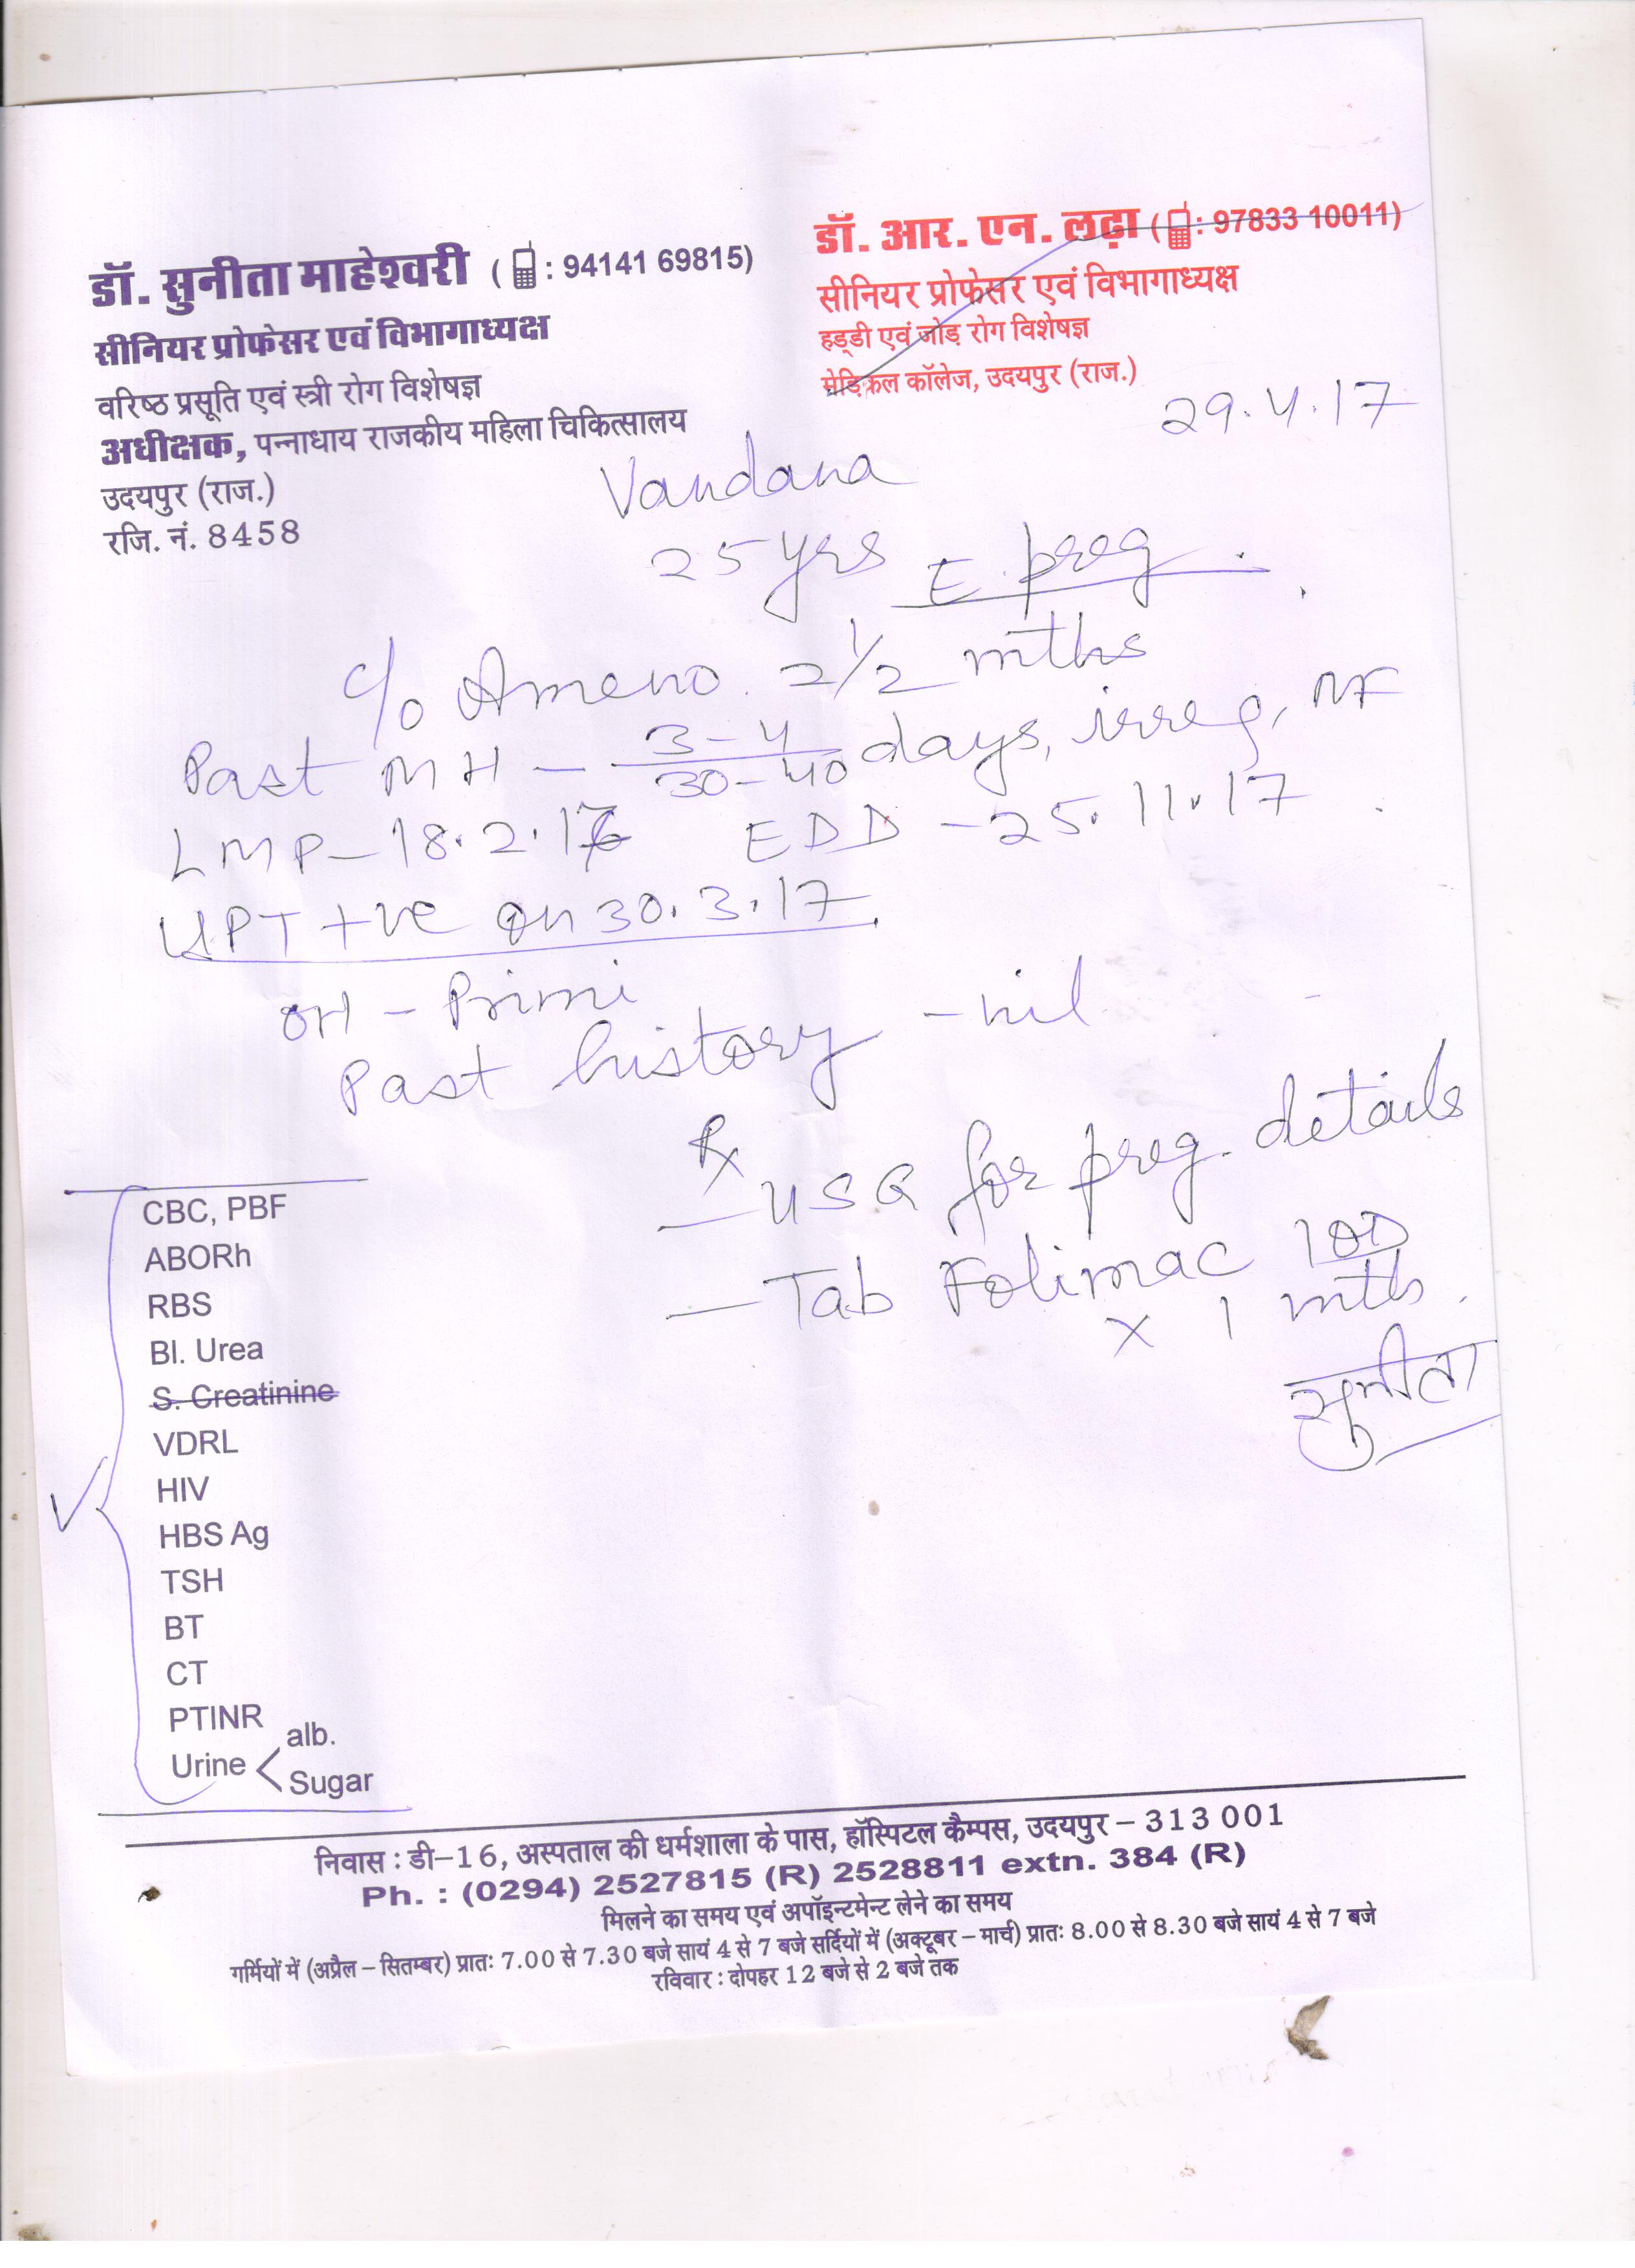 डॉ. सुनीता माहेश्वरी ( : 94141 69815)
सीनियर प्रोफेसर एवं विभागाध्यक्ष
वरिष्ठ प्रसूति एवं स्त्री रोग विशेषज्ञ
अधीक्षक, पन्नाधाय राजकीय महिला चिकित्सालय
उदयपुर (राज.)
रजि. नं. 8458
डॉ. आर. एन. लढ़ा ( : 97833 10011)
सीनियर प्रोफेसर एवं विभागाध्यक्ष
हड्डी एवं जोड़ रोग विशेषज्ञ
मेडिकल कॉलेज, उदयपुर (राज.)
29.4.17
Vandana
25 yrs E. preg.
c/o Ameno. 2 1/2 mths
Past MH - 3-4/30-40 days, irreg, NF
LMP - 18.2.17 EDD - 25.11.17
UPT +ve on 30.3.17.
OH - Primi
Past history - nil
Rx
- USG for preg. details
- Tab Folimac 1 OD
x 1 mth.
सुनीता
CBC, PBF
ABORh
RBS
Bl. Urea
S. Creatinine
VDRL
HIV
HBS Ag
TSH
BT
CT
PTINR
Urine < alb.
Sugar
निवास : डी-16, अस्पताल की धर्मशाला के पास, हॉस्पिटल कैम्पस, उदयपुर – 313 001
Ph. : (0294) 2527815 (R) 2528811 extn. 384 (R)
मिलने का समय एवं अपॉइन्टमेन्ट लेने का समय
गर्मियों में (अप्रैल – सितम्बर) प्रातः 7.00 से 7.30 बजे सायं 4 से 7 बजे सर्दियों में (अक्टूबर – मार्च) प्रातः 8.00 से 8.30 बजे सायं 4 से 7 बजे
रविवार : दोपहर 12 बजे से 2 बजे तक